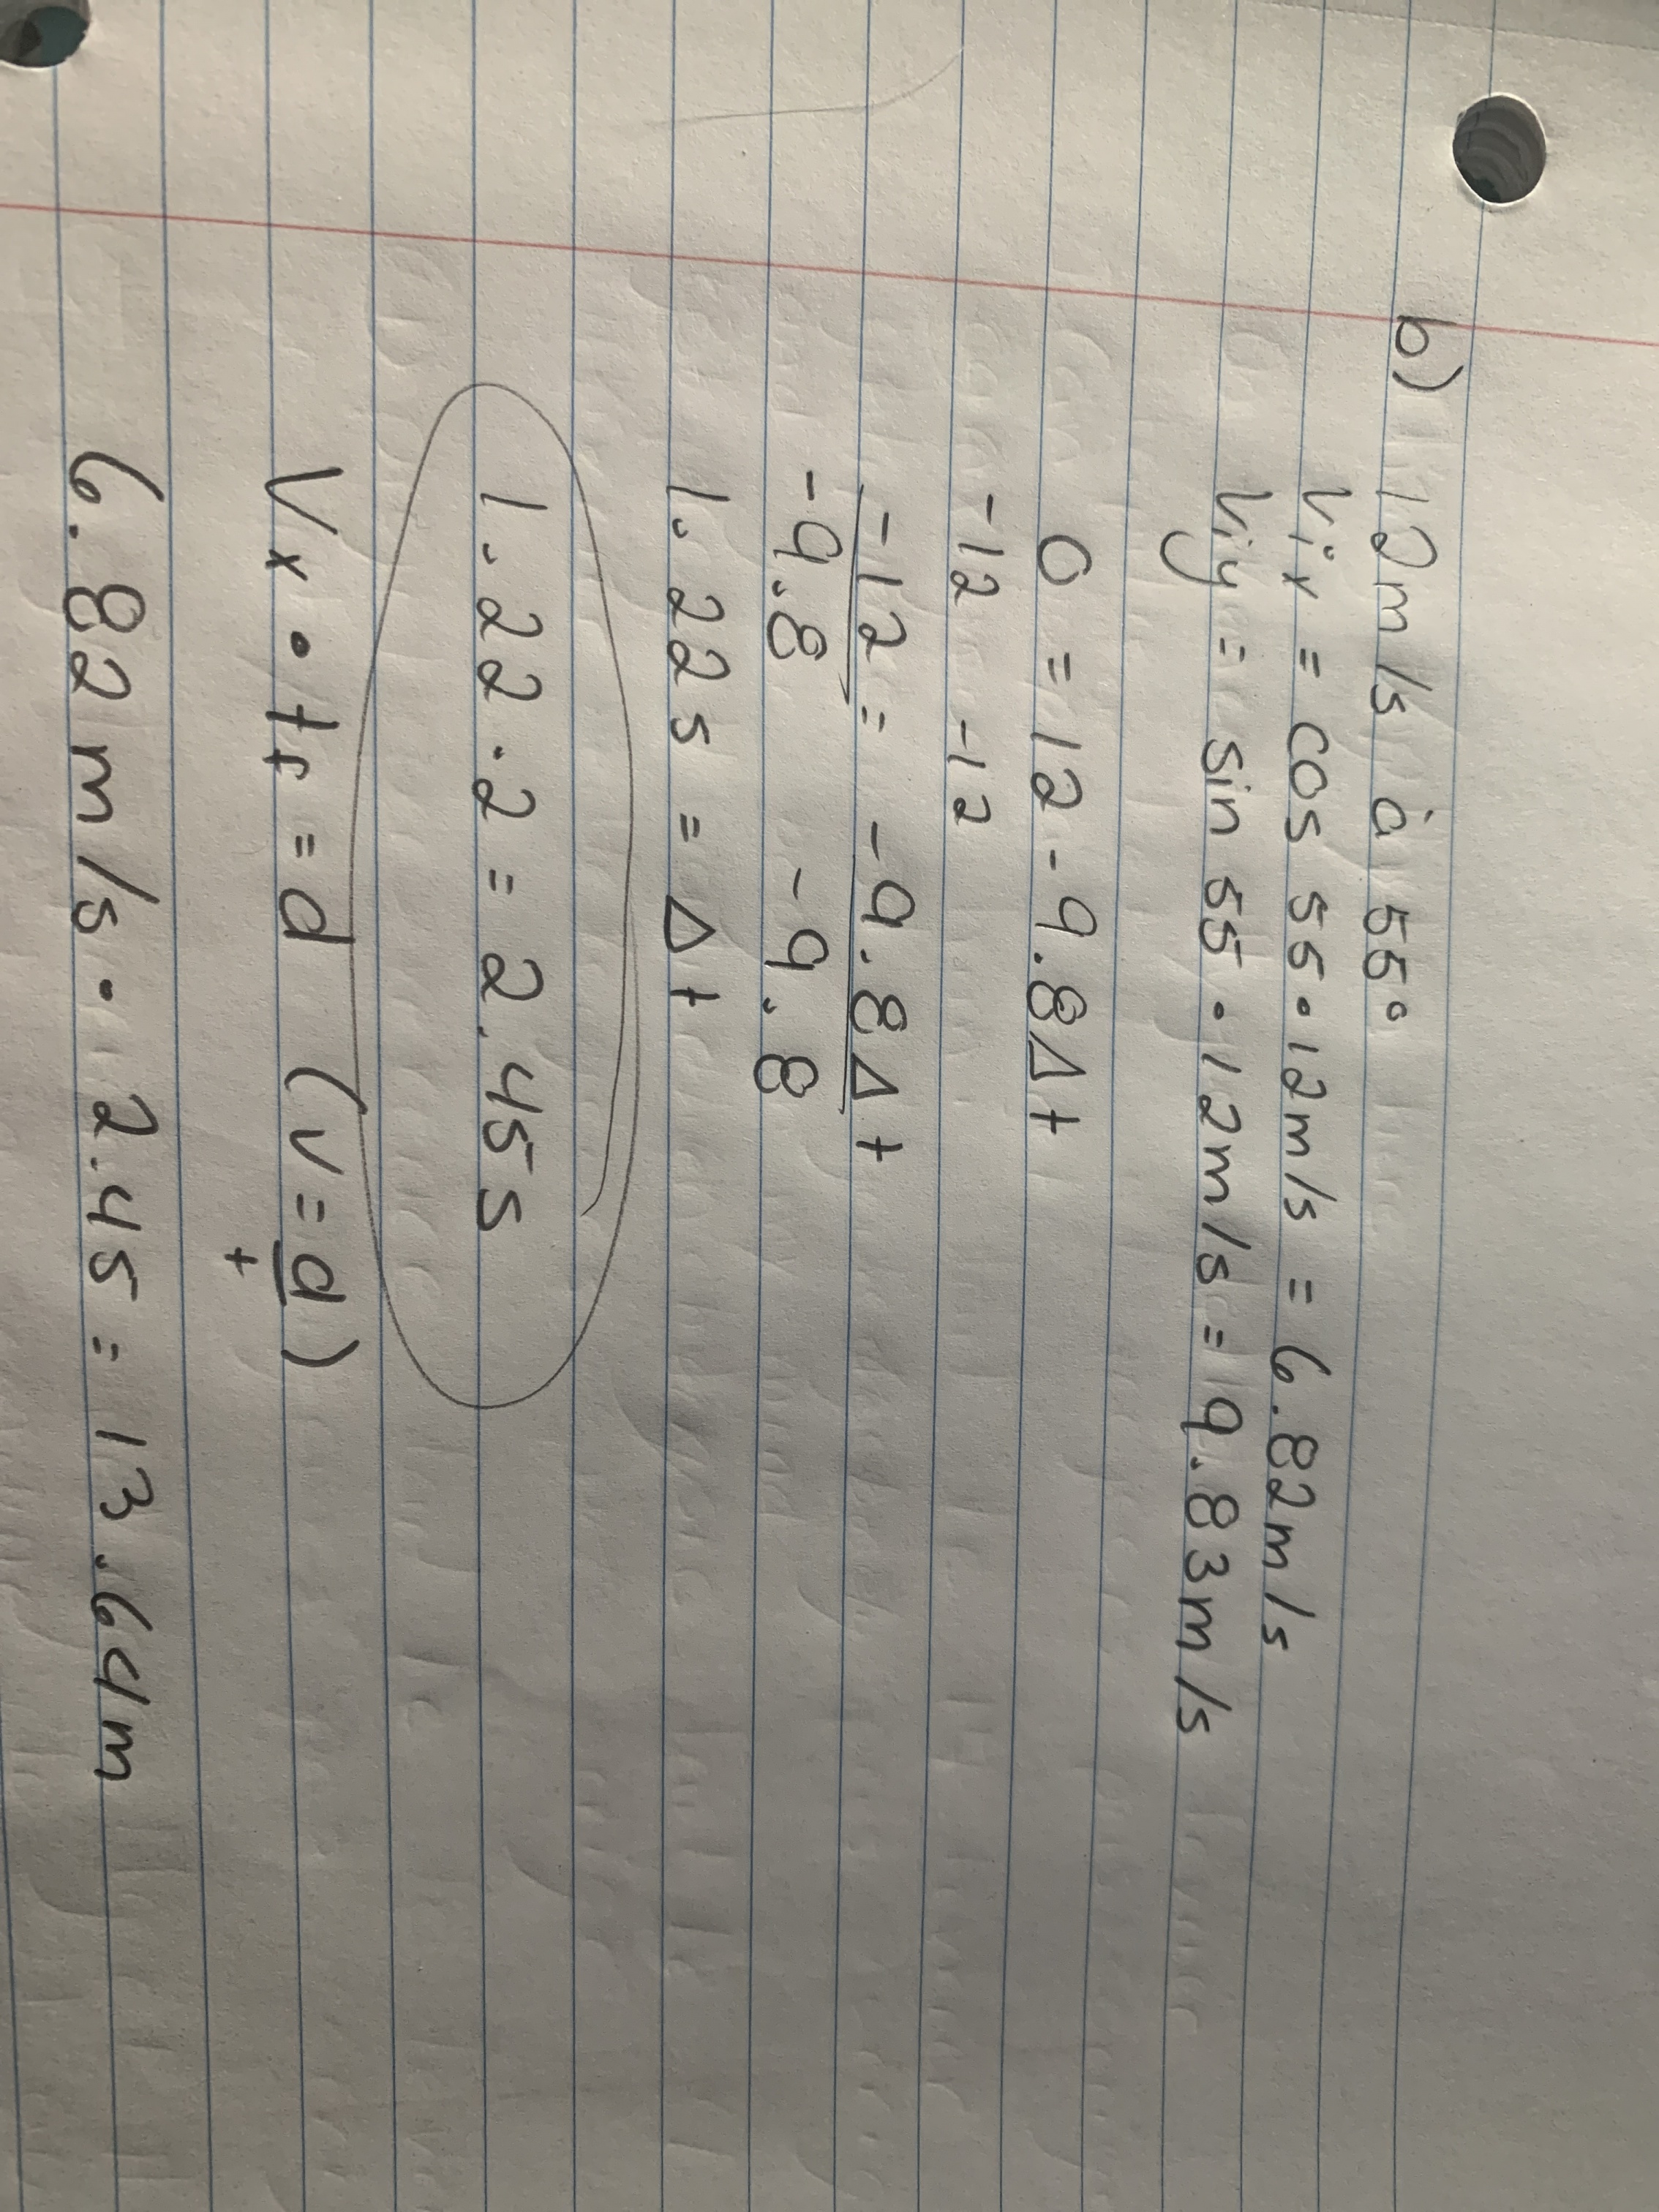 b) 12m/s à 55°
Vix = cos 55 · 12m/s = 6.82m/s
Viy = sin 55 · 12m/s = 9.83m/s
0 = 12 - 9.8Δt
-12 -12
-12 = -9.8Δt
-9.8 -9.8
1.22s = Δt
1.22 · 2 = 2.45s
Vx · tf = d (v = d/t)
6.82m/s · 2.45 = 13.64m